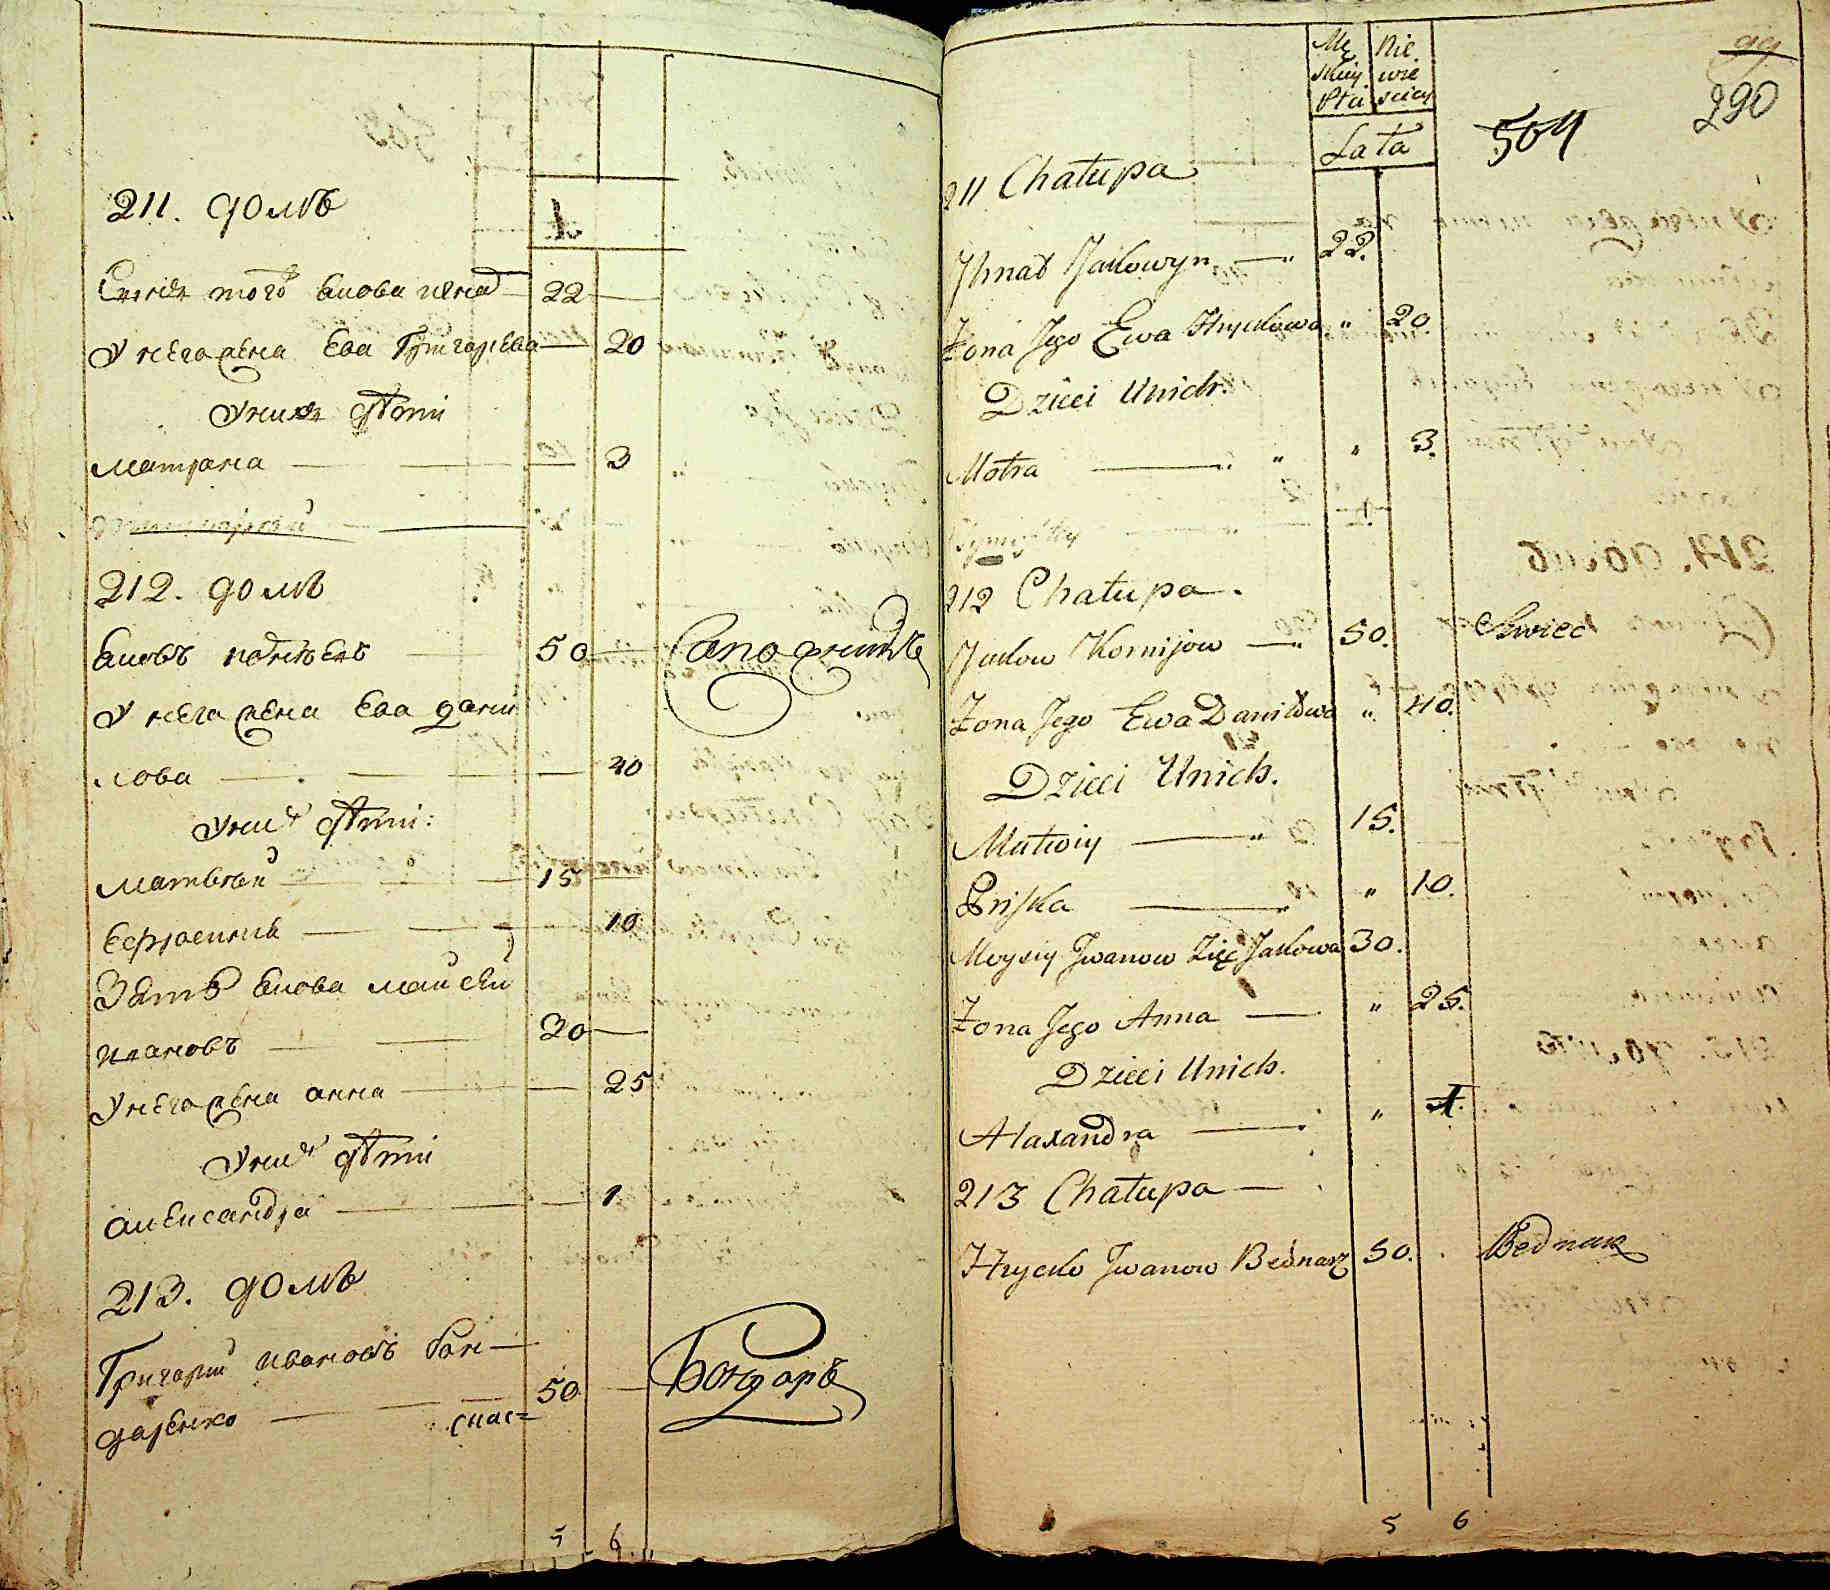 211. домъ
1
Синъ того Якова Игнат 22
У него жена Ева Григорьева 20
У нихъ дѣти
Матрона 3
212. домъ
Яковъ Корнѣевъ 50 Сапожникъ
У него жена Ева Дани
лова 40
У нихъ дѣти:
Матвѣй 15
Ефросинiя 10
Зять Якова Мойсей
Ивановъ 30
У него жена Анна 25
У нихъ дѣти
Александра 1
213. домъ
Григорий Ивановъ Бон
даренко 50 Бондарь
5 6
Mę Nie
skiey wie
Płci sciey
Lata
504
99
290
211 Chałupa
Jhnat Jakowyn " 22.
Żona Jego Ewa Hryckowa " 20.
Dzieci Unich.
Motra " " " 3.
212 Chałupa.
Jakow Kornijow " 50. Szwiec
Żona Jego Ewa Daniłowa " 40.
Dzieci Unich.
Matwiy " 15.
Priska " 10.
Moysiy Jwanow Zięć Jakowa 30.
Żona Jego Anna " 25.
Dzieci Unich.
Alaxandra " 1.
213 Chałupa
Hrycko Jwanow Bednarz 50. Bednarz
5 6